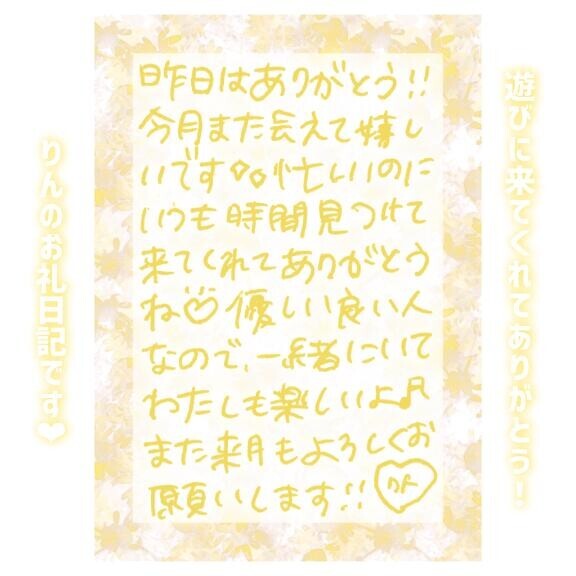 遊びに来てくれてありがとう！
昨日はありがとう!!
今月また会えて嬉し
いです 忙しいのに
いつも時間見つけて
来てくれてありがとう
ね♡優しい良い人
なので、一緒にいて
わたしも楽しいよ♬
また来月もよろしくお
願いします!!
りんのお礼日記です❤